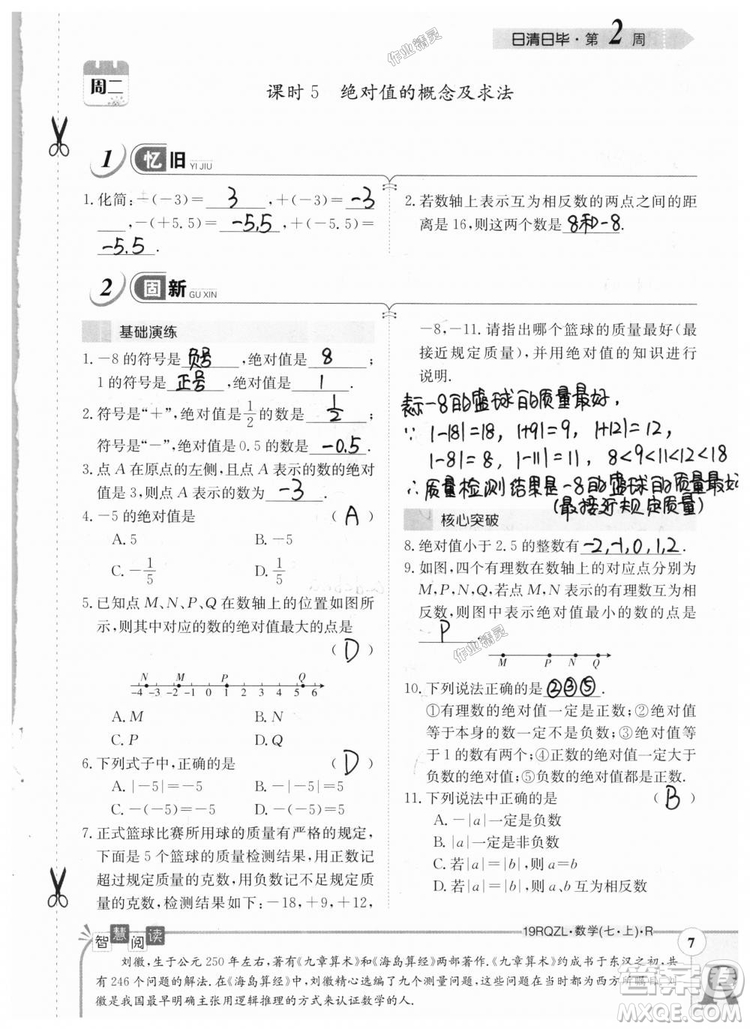 日清日毕·第2周
周二
课时5 绝对值的概念及求法
作业精灵
1 忆旧 YI JIU
1. 化简:−(−3)= 3 ,+(−3)= −3
,−(+5.5)= −5.5 ,+(−5.5)=
−5.5 .
2. 若数轴上表示互为相反数的两点之间的距
离是16,则这两个数是 8和-8.
2 固新 GU XIN
基础演练
1. −8的符号是 负号 ,绝对值是 8 ;
1的符号是 正号 ,绝对值是 1 .
2. 符号是“+”,绝对值是1/2的数是 1/2 ;
符号是“−”,绝对值是0.5的数是 -0.5 .
3. 点A在原点的左侧,且点A表示的数的绝对
值是3,则点A表示的数为 -3 .
4. −5的绝对值是 ( A )
A. 5 B. −5
C. −1/5 D. 1/5
5. 已知点M、N、P、Q在数轴上的位置如图所
示,则其中对应的数的绝对值最大的点是
( D )
N M P Q
-4 -3 -2 -1 0 1 2 3 4 5 6
A. M B. N
C. P D. Q
6. 下列式子中,正确的是 ( D )
A. |−5|=−5 B. −|−5|=5
C. −(−5)=−5 D. −(−5)=5
7. 正式篮球比赛所用球的质量有严格的规定,
下面是5个篮球的质量检测结果,用正数记
超过规定质量的克数,用负数记不足规定质
量的克数,检测结果为:−18,+9,+12,
−8,−11.请指出哪个篮球的质量最好(最
接近规定质量),并用绝对值的知识进行
说明.
表示-8的篮球的质量最好,
∵ |-18|=18, |+9|=9, |+12|=12,
|-8|=8, |-11|=11, 8<9<11<12<18
∴质量检测结果是-8的篮球的质量最好
(最接近规定质量)
核心突破
8. 绝对值小于2.5的整数有 -2,-1,0,1,2 .
9. 如图,四个有理数在数轴上的对应点分别为
M,P,N,Q,若点M,N表示的数互为相
反数,则图中表示绝对值最小的数的点是
P .
作业精灵
M P N Q
10. 下列说法正确的是 ②③⑤ .
①有理数的绝对值一定是正数;②绝对值
等于本身的数一定不是负数;③绝对值等
于1的数有两个;④绝对值一定大于本身;
⑤负数的绝对值是它的相反数.
11. 下列说法中正确的是 ( B )
A. −|a|一定是负数
B. |a|一定是非负数
C. 若|a|=|b|,则a=b
D. 若|a|=|b|,则a与b互为相反数
智慧阅读
19RQZL·数学(七·上)·R
7
刘徽,生于公元250年左右,著有《九章算术》和《海岛算经》两部著作.《九章算术》约成书于东汉之初,共
有246个问题的解法.在《海岛算经》中,刘徽精心选编了九个测量问题,这些题在当时都为西方所瞩目.刘
徽是最早明确主张用逻辑推理的方式来认证数学的人.